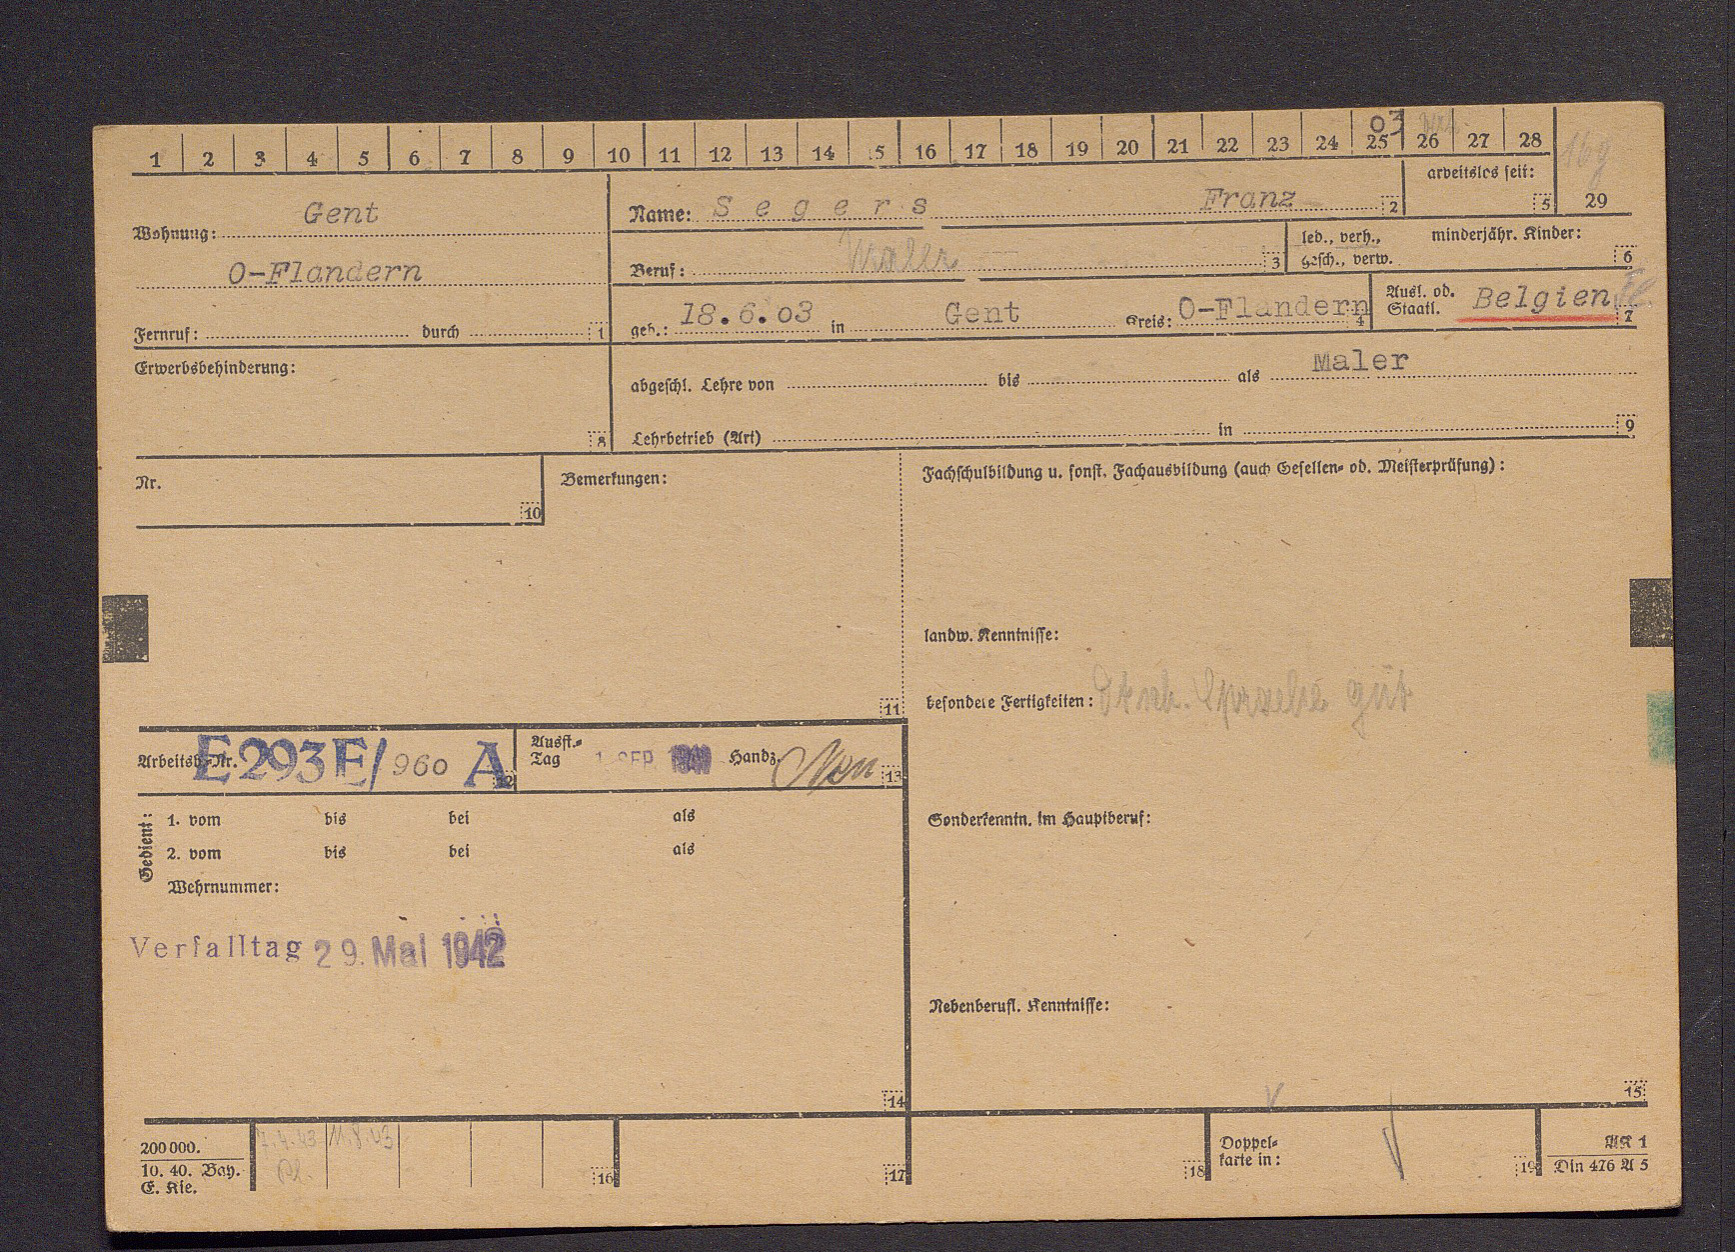 1 2 3 4 5 6 7 8 9 10 11 12 13 14 15 16 17 18 19 20 21 22 23 24 25 26 27 28
03
arbeitslos seit:
5 29
Wohnung: Gent
O-Flandern
Fernruf: durch 1
Name: Segers Franz 2
Beruf: Maler 3
led., verh., gesch., verw.
minderjähr. Kinder: 6
geb.: 18.6.03 in Gent Kreis: O-Flandern 4
Ausl. od. Staatl. Belgien 7
Erwerbsbehinderung:
8
abgeschl. Lehre von bis als Maler
Lehrbetrieb (Art) in 9
Nr.
10
Bemerkungen:
11
Fachschulbildung u. sonst. Fachausbildung (auch Gesellen- od. Meisterprüfung):
landw. Kenntnisse:
besondere Fertigkeiten: Sprache gut
Arbeitsb.-Nr. E293E/960 A 12
Ausst.-Tag 1. SEP. Handz. 13
Gedient:
1. vom bis bei als
2. vom bis bei als
Wehrnummer:
Verfalltag 29. Mai 1942
14
Sonderkenntn. im Hauptberuf:
Nebenberufl. Kenntnisse:
15
200 000.
10. 40. Bay.
E. Kie.
7.4.43 11.8.43
16
17
18
Doppel-
karte in:
19
AK 1
Din 476 A 5